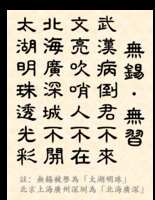 無錫·無習
武漢病倒君不來
文亮吹哨人不在
北海廣深城不開
太湖明珠透光彩
註：無錫被譽為「太湖明珠」
北京上海廣州深圳為「北海廣深」